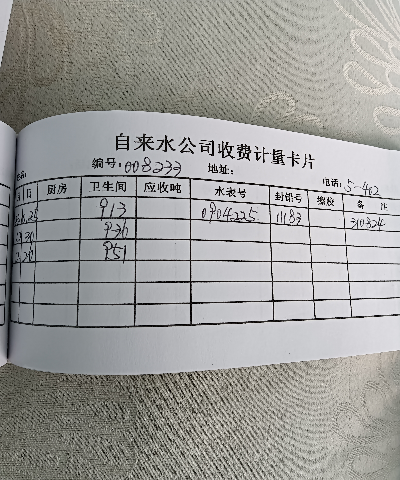 自来水公司收费计量卡片
编号:008233 地址: 电话:5-402
厨房 卫生间 应收吨 水表号 封铅号 换胶 备
913 0904225 11183 310824
936
951